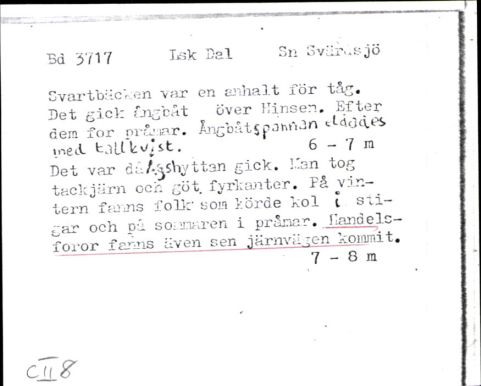 Bd 3717 Lsk Dal Sn Svärdsjö
Svartbäcken var en anhalt för tåg.
Det gick ångbåt över Hinsen. Efter
dem for pråmar. Ångbåtspannan eldades
med tallkvist. 6 - 7 m
Det var då hyttan gick. Man tog
tackjärn och göt fyrkanter. På vin-
tern fanns folk som körde kol i sti-
gar och på sommaren i pråmar. Handels-
foror fanns även sen järnvägen kommit.
7 - 8 m
C II 8